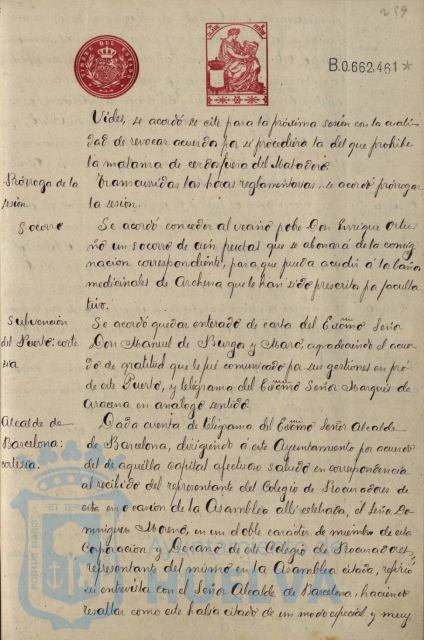 259
B.0.662.461*
Vides, se acordó se cite para la próxima sesión con la cuali-
dad de revocar acuerdo por se procediera la del que prohibe
la matanza de cerda fuera del Matadero.
Prórroga de la
sesión.
Transcurridas las horas reglamentarias se acordó prórrogar
la sesión.
Socorro
Se acordó conceder al vecino pobre Don Enrique Ortu-
ño un socorro de cien pesetas que se abonará de la consig-
nacion correspondiente, para que pueda acudir á los baños
medicinales de Archena que le han sido prescritos por faculta-
tivo.
Subvencion
del Puerto: corte-
sia
Se acordó quedar enterado de carta del Excmo Señor
Don Manuel de Burgos y Mazo, agradeciendo el acuer-
do de gratitud que le fué comunicado por sus gestiones en pró
de este Puerto, y telegrama del Excmo Señor Marqués de
Aracena en análogo sentido.
Alcalde de
Barcelona:
cortesia.
Dada cuenta de telégrama del Excmo Señor Alcalde
de Barcelona, dirigiendo á este Ayuntamiento por acuerdo
del de aquella capital afectuoso saludo en correspondencia
al recibido del representante del Colegio de Procuradores de
esta en ocasion de la Asamblea allí celebrada, el Señor Do-
minguez Moreno, en su doble carácter de miembro de esta
Corporacion y Decano de este Colegio de Procuradores,
representante del mismo en la Asamblea citada, refirió
su entrevista con el Señor Alcalde de Barcelona, haciendo
resaltar como este habia citado de un modo especial y muy
PORTUS MARIS
ET TERRAE
HUELVA